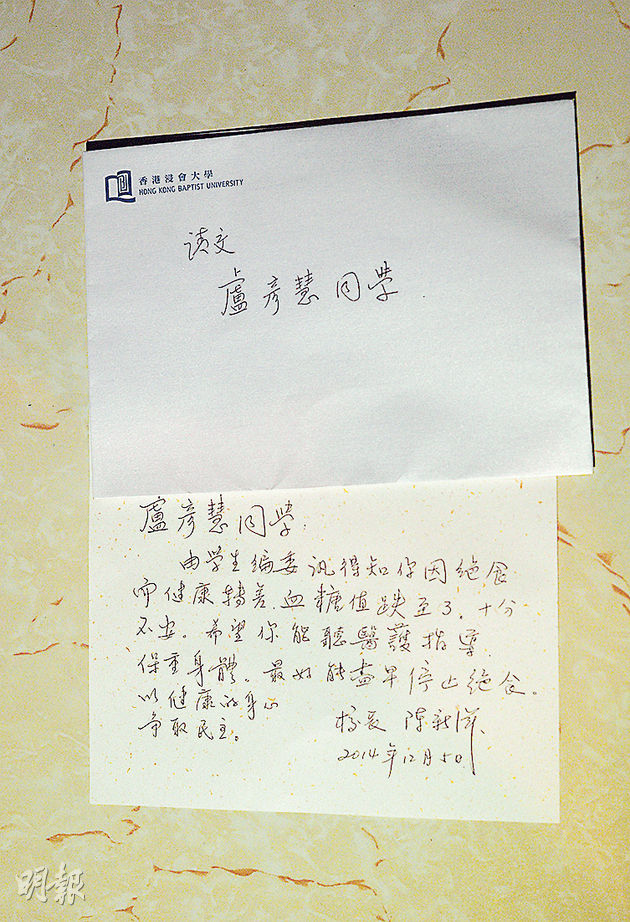 香港浸會大學
HONG KONG BAPTIST UNIVERSITY
請交
盧彥慧同學
盧彥慧同學
由學生編委訊得知你因絕食
而健康轉差,血糖值跌至3,十分
不安。希望你能聽醫護指導,
保重身體。最好能盡早停止絕食。
以健康的身心
爭取民主。
校長 陳新滋
2014年12月5日
明報